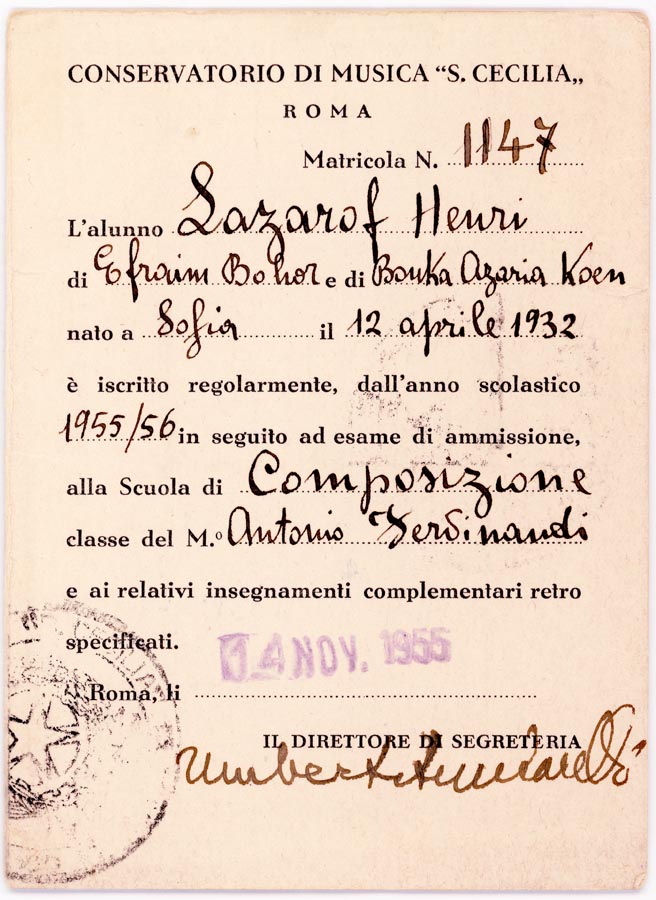 CONSERVATORIO DI MUSICA “S. CECILIA„
ROMA
Matricola N. 1147
L'alunno Lazarof Henri
di Efraim Bohor e di Bouka Azaria Koen
nato a Sofia il 12 aprile 1932
è iscritto regolarmente, dall'anno scolastico
1955/56 in seguito ad esame di ammissione,
alla Scuola di Composizione
classe del M.º Antonio Ferdinandi
e ai relativi insegnamenti complementari retro
specificati.
14 NOV. 1955
Roma, li
IL DIRETTORE DI SEGRETERIA